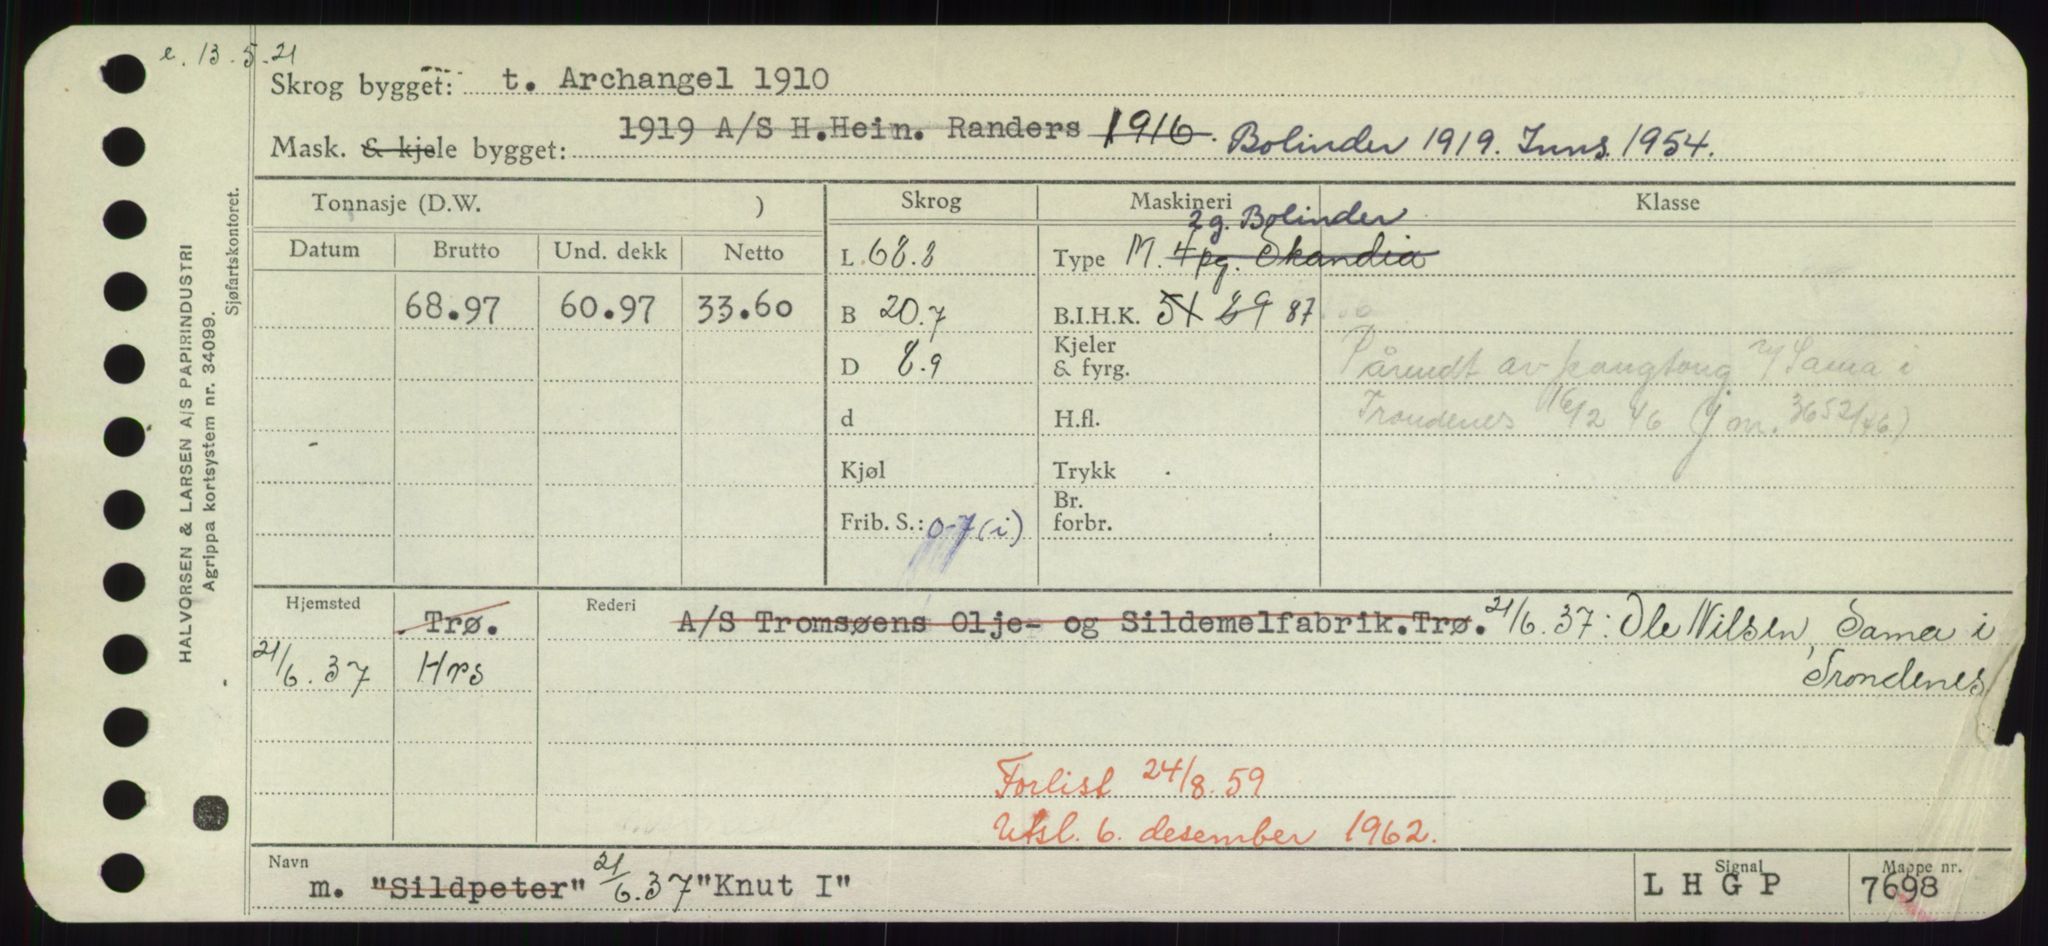 e. 13.5.21
Skrog bygget: t. Archangel 1910
Mask. & kjele bygget: 1919 A/S H.Hein. Randers 1916. Bolinder 1919. Inns. 1954.
Tonnasje (D.W. ) Skrog Maskineri Klasse
2g. Bolinder
Datum Brutto Und. dekk Netto L 68.8 Type M. 4pg. Skandia
68.97 60.97 33.60 B 20.7 B.I.H.K. 51 89 87
D 8.9 Kjeler & fyrg.
av Sama i
d H.fl. Trondenes 16/12 46 (J nr. 3652/46)
Kjøl Trykk
Frib. S.: 0-7 (i) Br. forbr.
Hjemsted Trø. Rederi A/S Tromsøens Olje- og Sildemelfabrik.Trø. 21/6.37: Ole Nilsen, Sama i
21/6.37 Hrs Trondenes
Forlist 24/8.59
Utsl. 6. desember 1962.
Navn m. "Sildpeter" 21/6.37 "Knut I" Signal L H G P Mappe nr. 7698
HALVORSEN & LARSEN A/S PAPIRINDUSTRI
Agrippa kortsystem nr. 34099.
Sjøfartskontoret.